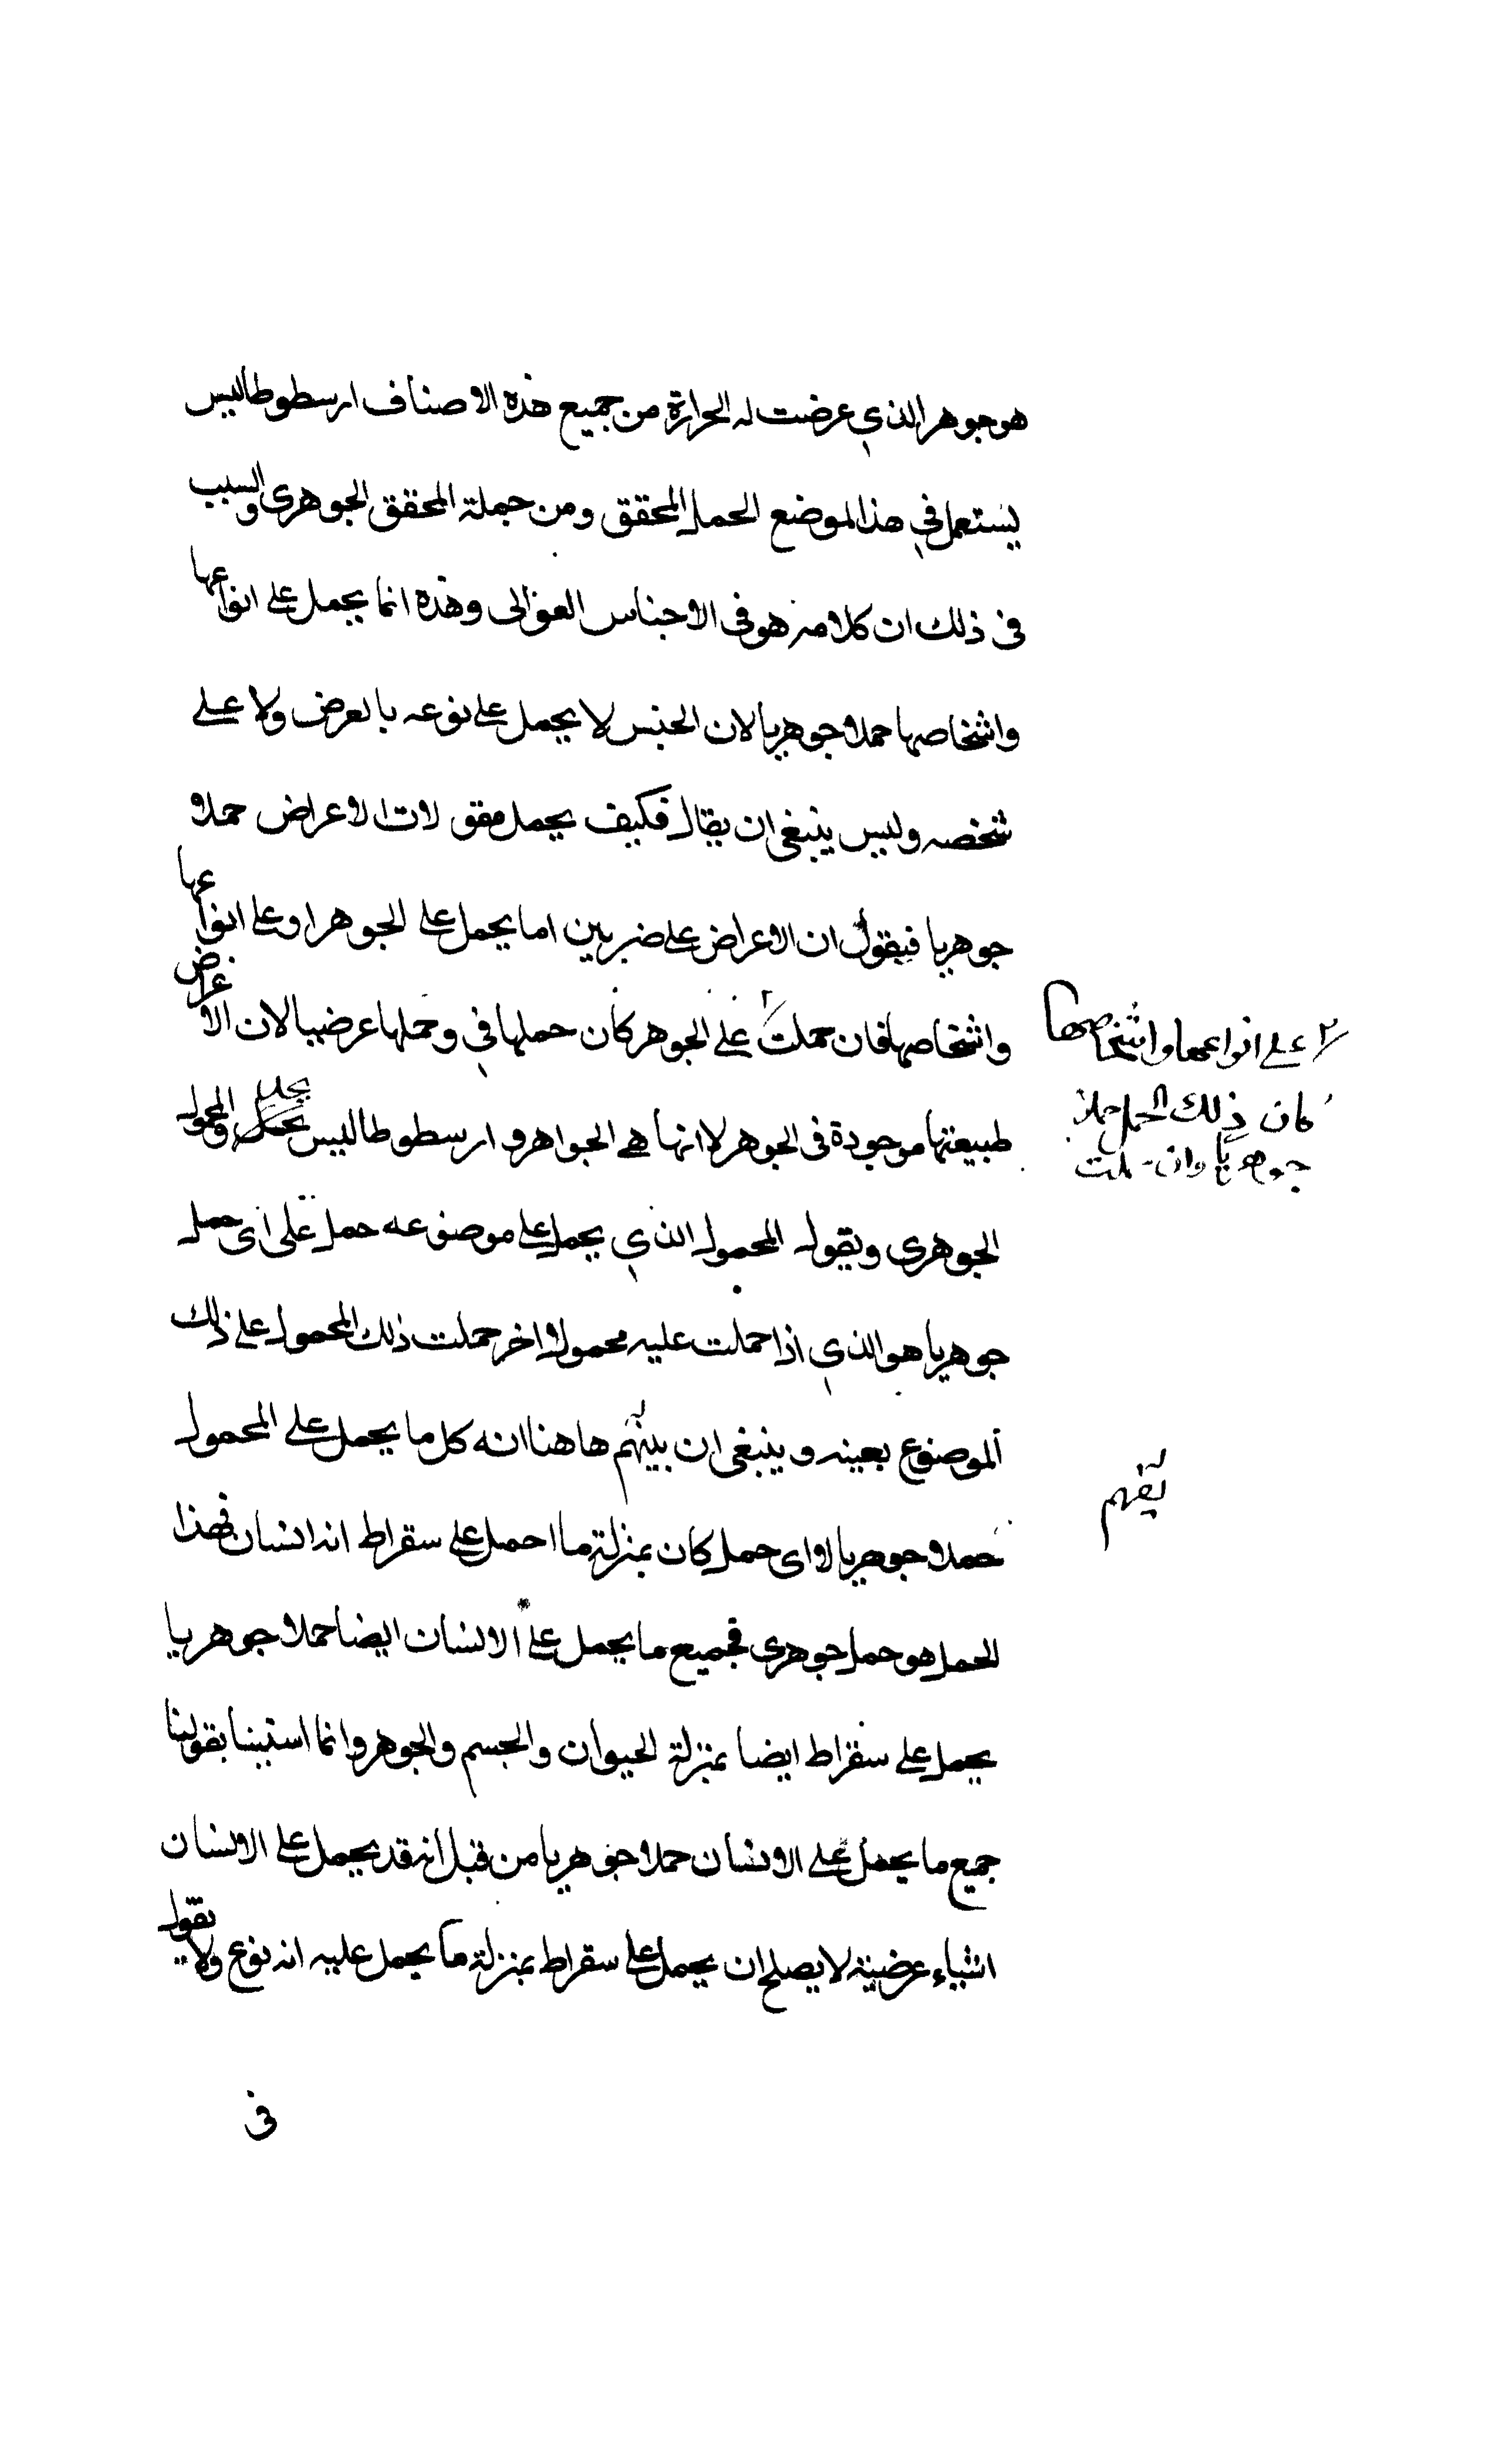 هو جوهر الذي عرضت له الحرارة من جميع هذه الاصناف ارسطوطاليس
يستعمل في هذا الموضع الحمل المحقق ومن جملة المحقق الجوهرى والسبب
فى ذلك ان كلامه هو فى الاجناس العوالى وهذه انما يحمل على انواعها
واشخاصها حملا جوهريا لان الجنس لا يحمل على نوعه بالعرض ولا على
شخصه وليس ينبغى ان يقال فكيف يحمل مقولات الاعراض حملا
جوهريا فيقول ان الاعراض على ضربين اما يحمل على الجوهر او على انواعها
واشخاصها فان حملت على الجوهر كان حملها في وحملها عرضيا لان الاعراض
على انواعها واشخاصها
كان ذلك الحمل حملا
جوهريا وان حملت
طبيعتها موجودة فى الجوهر لا انها هي الجواهر و ارسطوطاليس يحد المحمول
الجوهرى ويقول المحمول الذي يحمل على موضوعه حمل على اى حمله
جوهريا هو الذي اذا حملت عليه محمولا اخر حملت ذلك المحمول على ذلك
الموضوع بعينه و ينبغى ان يفهم هاهنا انه كل ما يحمل على المحمول
يفهم
حملا جوهريا لا اى حمل كان بمنزلة ما احمل على سقراط انه انسان فهذا
الحمل هو حمل جوهرى فجميع ما يحمل على الانسان ايضا حملا جوهريا
يحمل على سقراط ايضا بمنزلة الحيوان والجسم والجوهر وانما استبينا بقولنا
جميع ما يحمل على الانسان حملا جوهريا من قبل انه قد يحمل على الانسان
اشياء عرضية لا يصلح ان يحمل على سقراط بمنزلة ما يحمل عليه انه نوع ولا يقول
فى